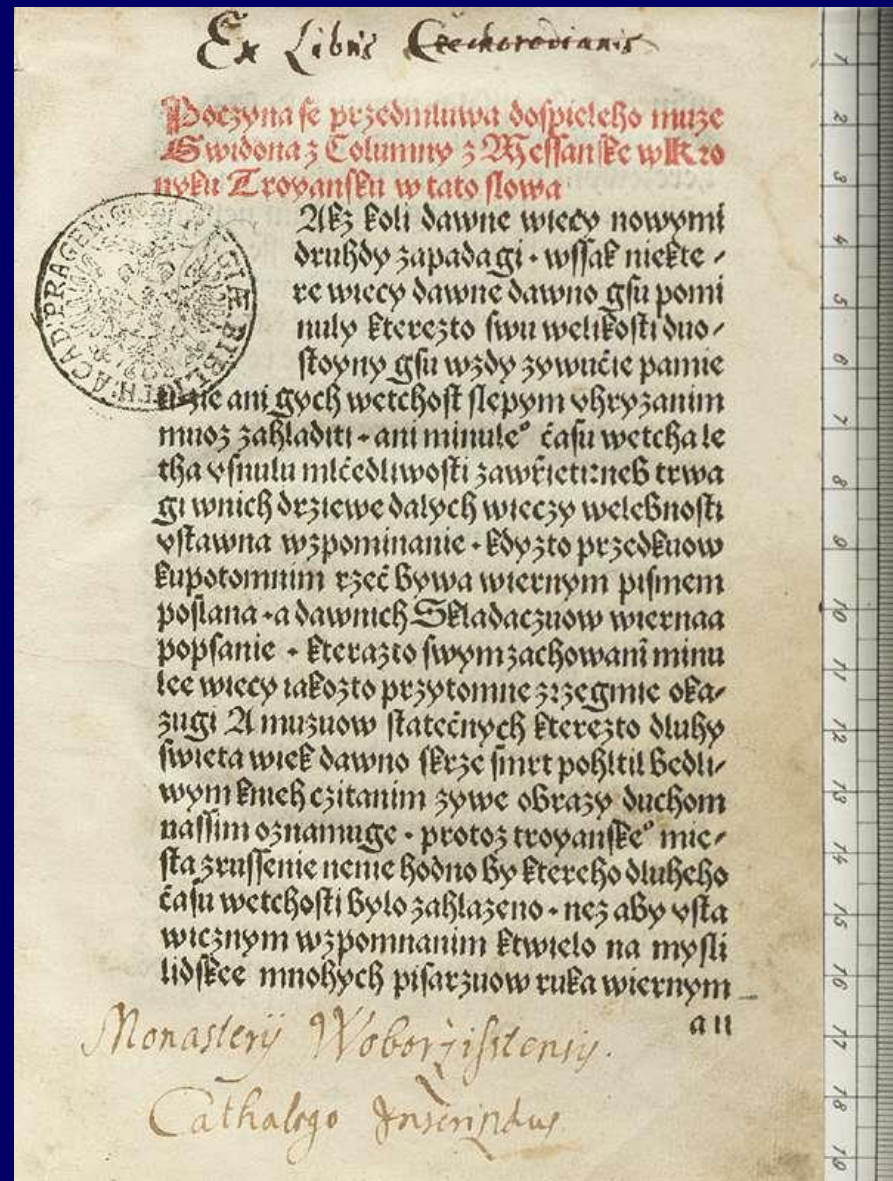 Ex Libris Czechorodianis
Poczyna se przedmluwa dospieleho muze
Gwidona z Columny z Messanske w Kro
nyku Troyansku w tato slowa
Akz koli dawne wiecy nowymi
druhdy zapadagi · wssak niekte ⸗
re wiecy dawne dawno gsu pomi
nuly kterezto swu welikosti duo⸗
stoyny gsu wzdy zywucie pamie
ani gych wetchost slepym vhryzanim
muoz zahladiti · ani minule° času wetcha le
tha vsnulu mlčedliwosti zawřieti: neb trwa
gi wnich drziewe dalych wieczy welebnosti
vstawna wzpominanie · kdyzto przedkuow
kupotomnim rzeč bywa wiernym pismem
poslana · a dawnich Skladaczuow wiernaa
popsanie · kterazto swym zachowanī minu
lee wiecy iakozto przytomne zrzegmie oka⸗
zugi A muzuow statečnych kterezto dluhy
swieta wiek dawno skrze smrt pohltil bedli⸗
wym knieh czitanim zywe obrazy duchom
nassim oznamuge · protoz troyanske° mie⸗
sta zrussenie nenie hodno by ktereho dluheho
času wetchosti bylo zahlazeno · nez aby vsta
wicznym wzpomnanim ktwielo na mysli
lidskee mnohych pisarzuow ruka wiernym
a ii
Monasterij Woborzisstensis.
Cathalogo Inscriptus
REGIÆ BIBLIOTH: ACAD: PRAGEN:
1
2
3
4
5
6
7
8
9
10
11
12
13
14
15
16
17
18
19